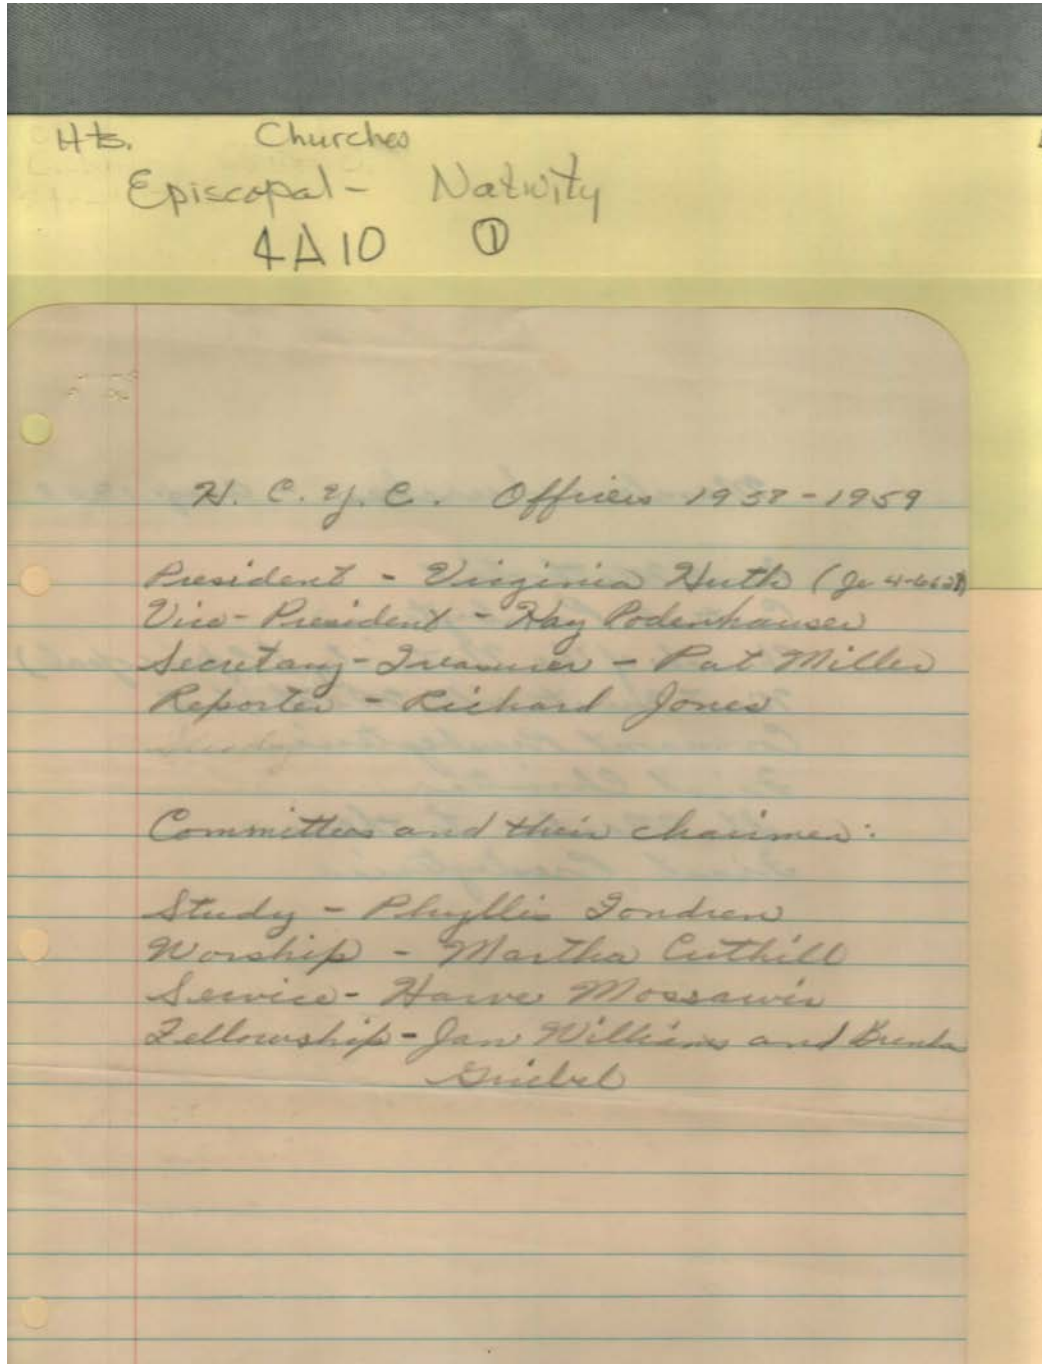 Hts. Churches
Episcopal - Nativity
4A10 ①
H. C. Y. C. Officers 1958-1959
President - Virginia Huth (Je 4-
Vice-President - Kay Podenhauser
Secretary-Treasurer - Pat Miller
Reporter - Richard Jones
Committees and their chairmen:
Study - Phyllis Fondren
Worship - Martha Cuthill
Service - Harve Mossawir
Fellowship - Jan Williams and Brenda
Griebel